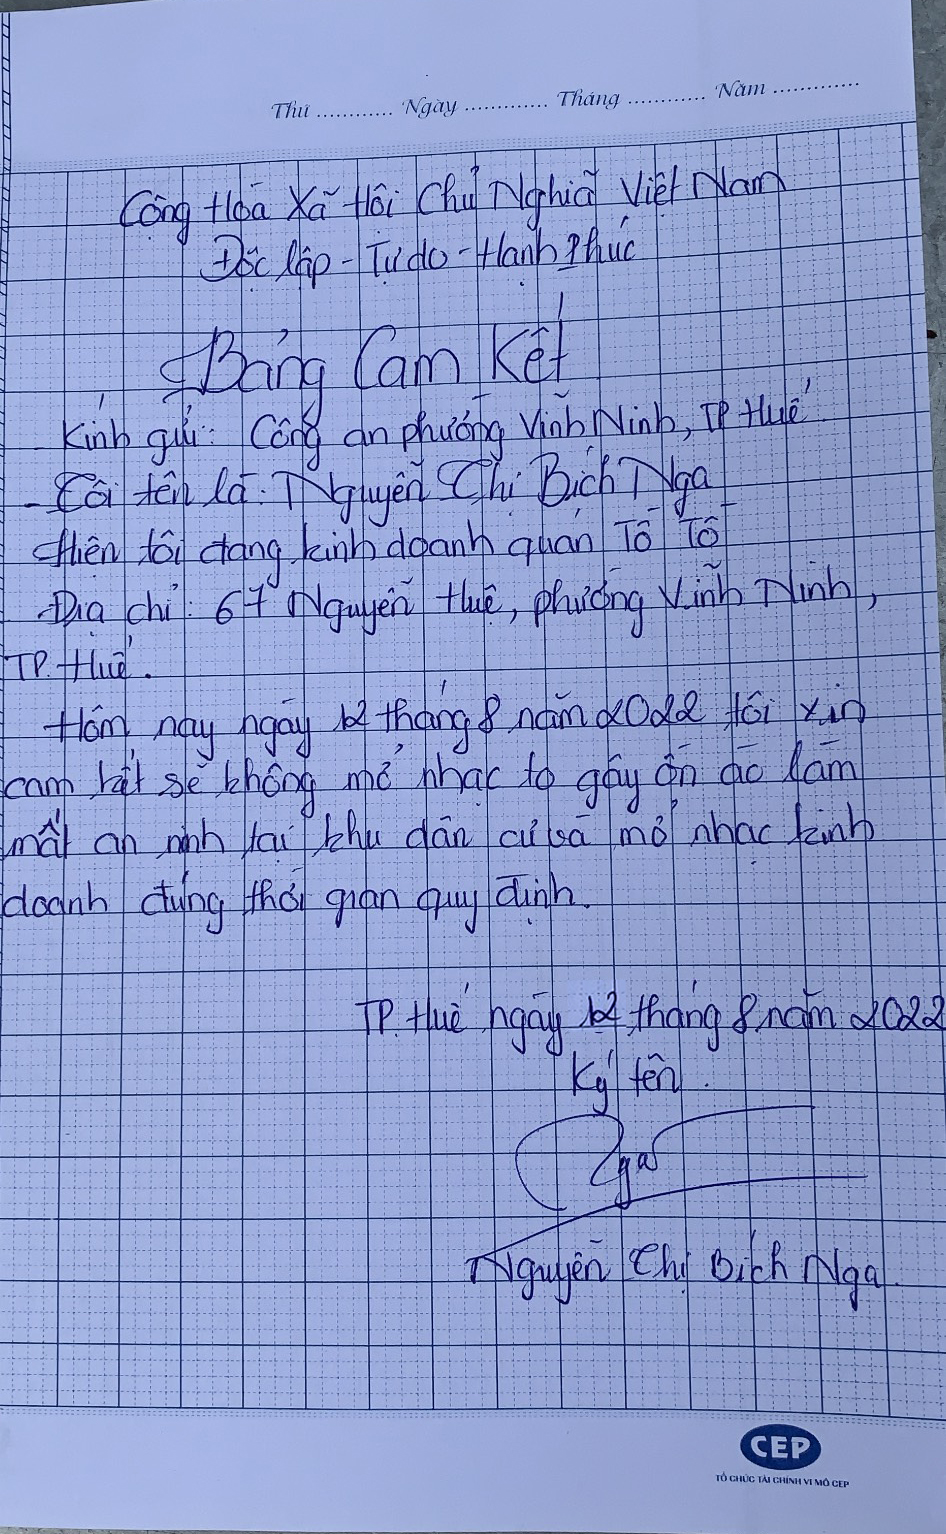 Thứ ............ Ngày ............. Tháng ............ Năm .............
Cộng Hòa Xã Hội Chủ Nghĩa Việt Nam
Độc lập - Tự do - Hạnh Phúc
Bảng Cam Kết
Kính gửi: Công an phường Vĩnh Ninh, TP Huế
- Tôi tên là: Nguyễn Thị Bích Nga
Hiện tôi đang kinh doanh quán Tô Tô
Địa chỉ: 67 Nguyễn Huệ, phường Vĩnh Ninh,
TP. Huế.
Hôm nay ngày 12 tháng 8 năm 2022 tôi xin
cam kết sẽ không mở nhạc to gây ồn ào làm
mất an ninh tại khu dân cư và mở nhạc kinh
doanh đúng thời gian quy định.
TP. Huế ngày 12 tháng 8 năm 2022
Ký tên.
Nga
Nguyễn Thị Bích Nga.
CEP
TỔ CHỨC TÀI CHÍNH VI MÔ CEP